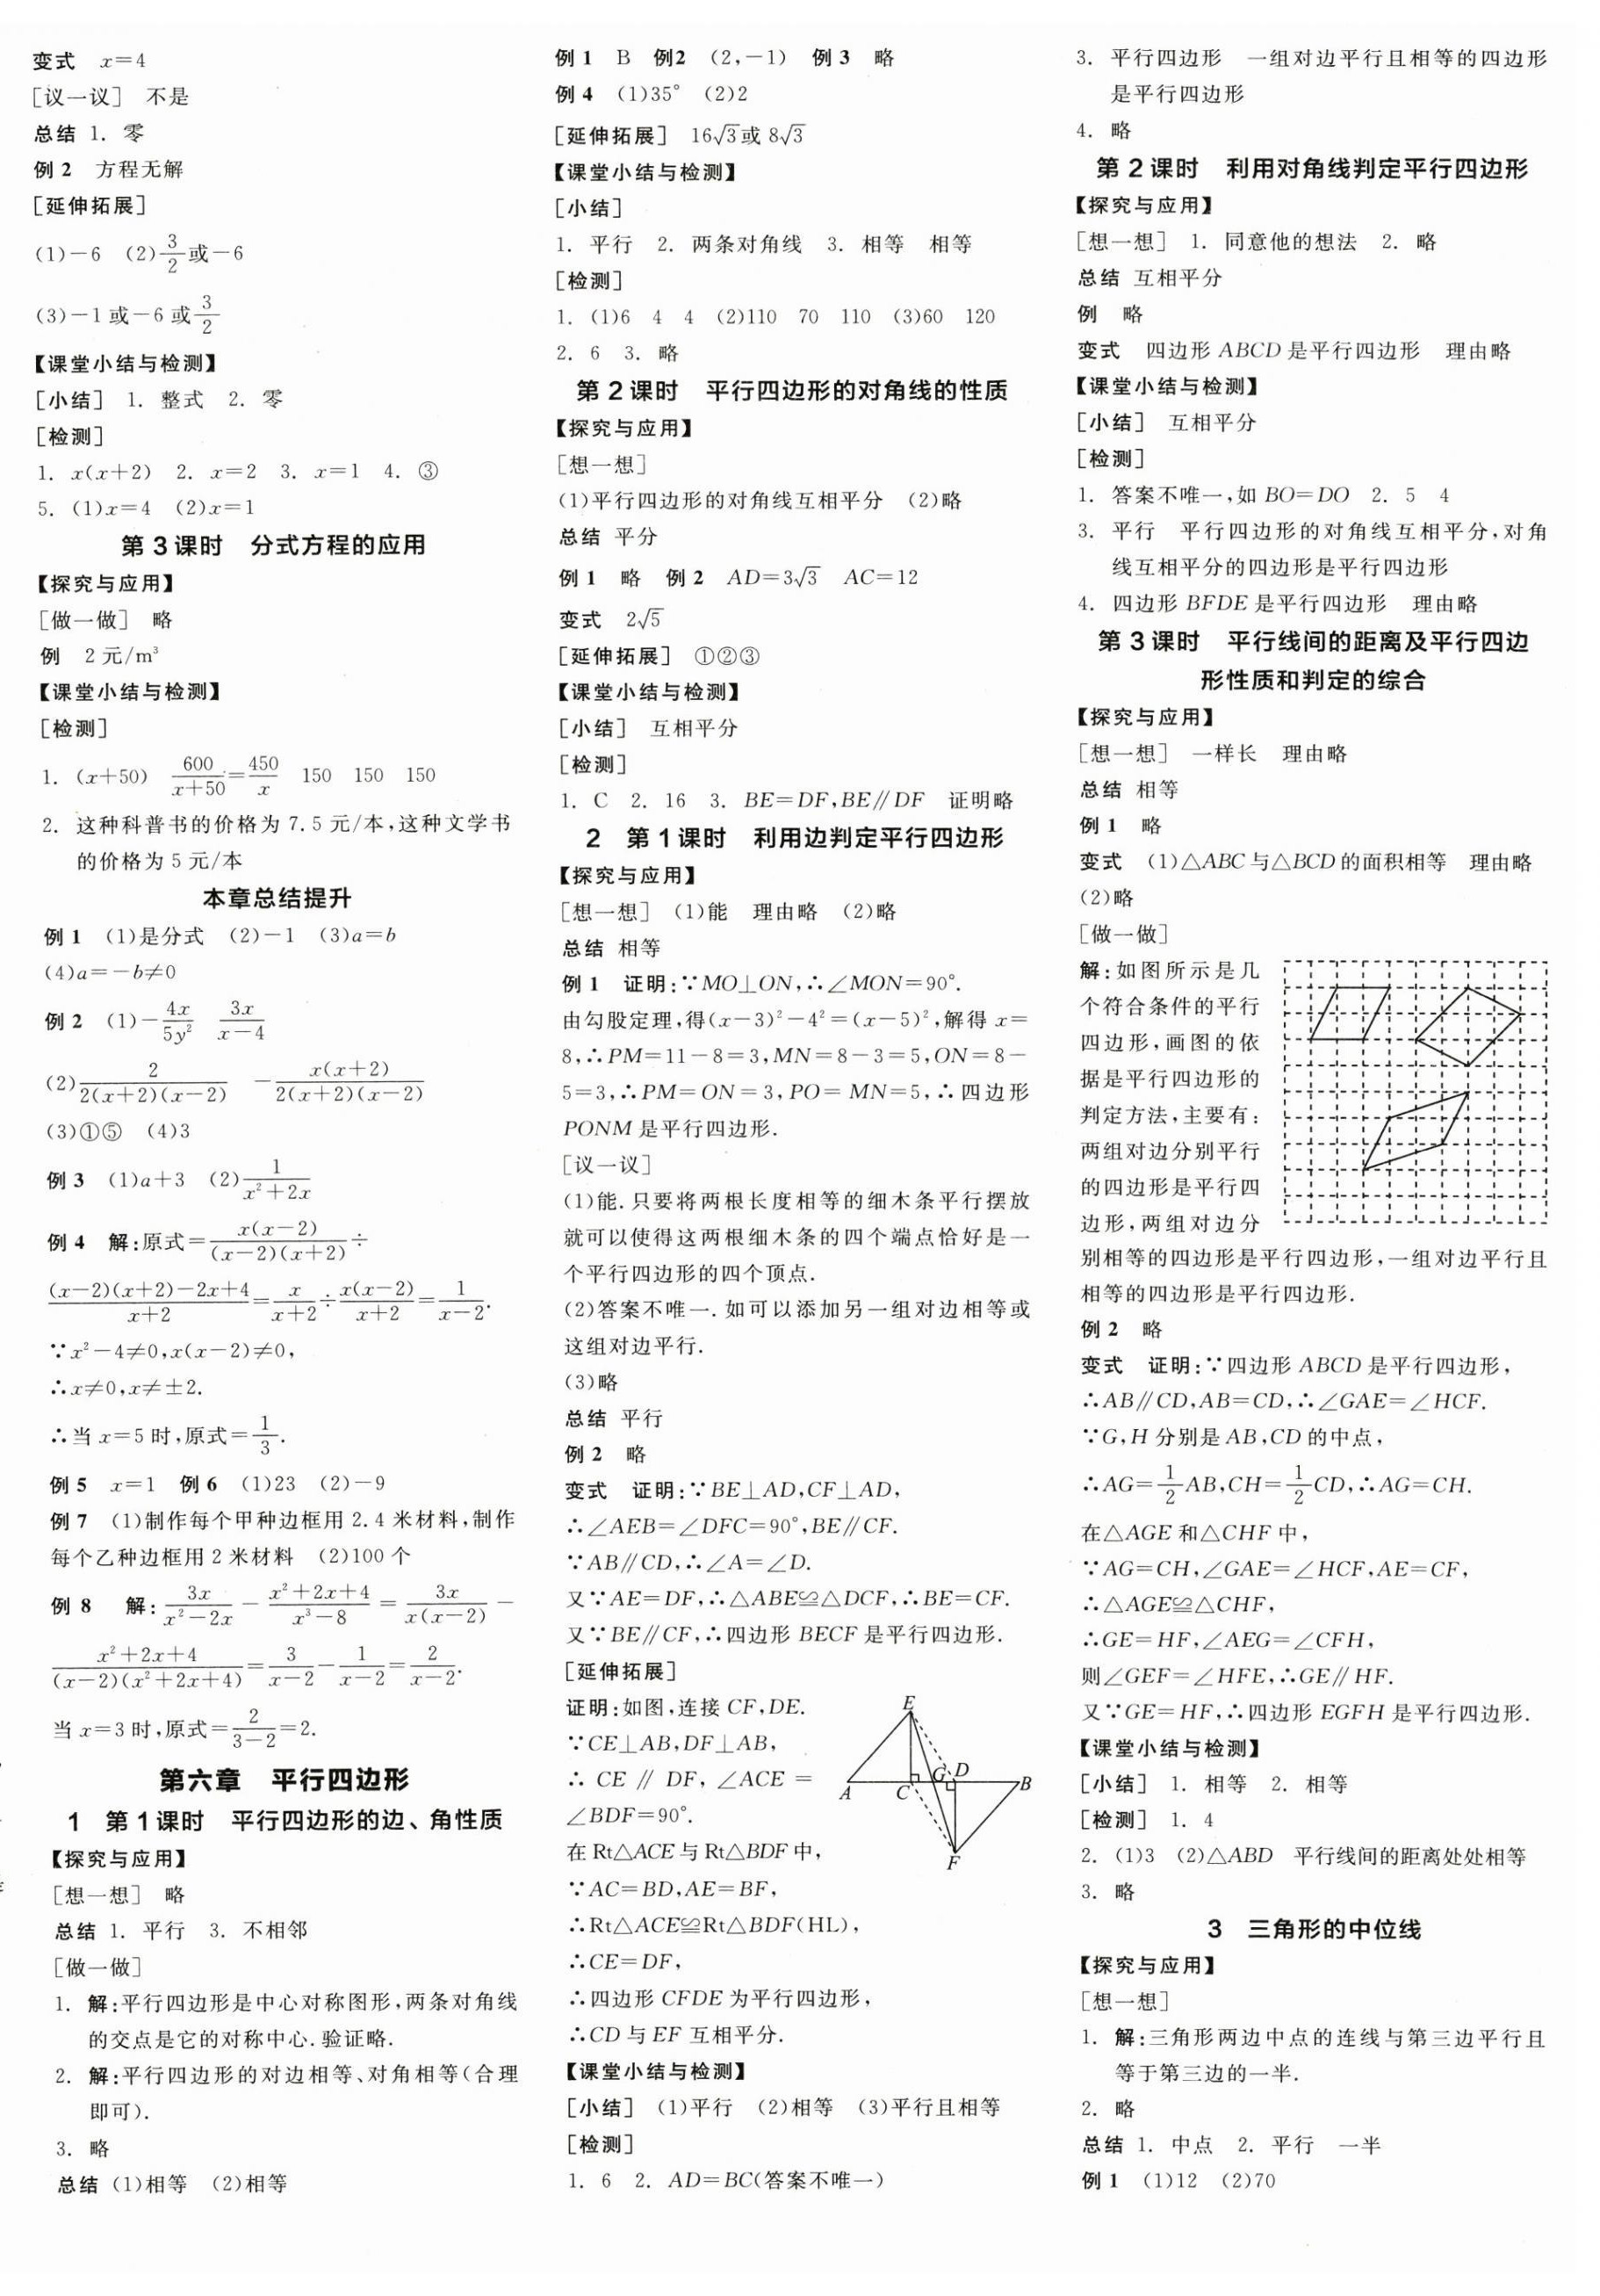 变式 x=4
[议一议] 不是
总结 1. 零
例 2 方程无解
[延伸拓展]
(1)-6 (2)3/2或-6
(3)-1或-6或3/2
【课堂小结与检测】
[小结] 1. 整式 2. 零
[检测]
1. x(x+2) 2. x=2 3. x=1 4. ③
5. (1)x=4 (2)x=1
第 3 课时 分式方程的应用
【探究与应用】
[做一做] 略
例 2 元/m³
【课堂小结与检测】
[检测]
1. (x+50) 600/(x+50)=450/x 150 150 150
2. 这种科普书的价格为 7.5 元/本,这种文学书
的价格为 5 元/本
本章总结提升
例 1 (1)是分式 (2)-1 (3)a=b
(4)a=-b≠0
例 2 (1)-4x/5y² 3x/(x-4)
(2)2/[2(x+2)(x-2)] -x(x+2)/[2(x+2)(x-2)]
(3)①⑤ (4)3
例 3 (1)a+3 (2)1/(x²+2x)
例 4 解:原式=x(x-2)/[(x-2)(x+2)]÷
[(x-2)(x+2)-2x+4]/(x+2)=x/(x+2)÷x(x-2)/(x+2)=1/(x-2).
∵x²-4≠0,x(x-2)≠0,
∴x≠0,x≠±2.
∴当 x=5 时,原式=1/3.
例 5 x=1 例 6 (1)23 (2)-9
例 7 (1)制作每个甲种边框用 2.4 米材料,制作
每个乙种边框用 2 米材料 (2)100 个
例 8 解:3x/(x²-2x)-(x²+2x+4)/(x³-8)=3x/[x(x-2)]-
(x²+2x+4)/[(x-2)(x²+2x+4)]=3/(x-2)-1/(x-2)=2/(x-2).
当 x=3 时,原式=2/(3-2)=2.
第六章 平行四边形
1 第 1 课时 平行四边形的边、角性质
【探究与应用】
[想一想] 略
总结 1. 平行 3. 不相邻
[做一做]
1. 解:平行四边形是中心对称图形,两条对角线
的交点是它的对称中心.验证略.
2. 解:平行四边形的对边相等、对角相等(合理
即可).
3. 略
总结 (1)相等 (2)相等
例 1 B 例2 (2,-1) 例 3 略
例 4 (1)35° (2)2
[延伸拓展] 16√3或 8√3
【课堂小结与检测】
[小结]
1. 平行 2. 两条对角线 3. 相等 相等
[检测]
1. (1)6 4 4 (2)110 70 110 (3)60 120
2. 6 3. 略
第 2 课时 平行四边形的对角线的性质
【探究与应用】
[想一想]
(1)平行四边形的对角线互相平分 (2)略
总结 平分
例 1 略 例 2 AD=3√3 AC=12
变式 2√5
[延伸拓展] ①②③
【课堂小结与检测】
[小结] 互相平分
[检测]
1. C 2. 16 3. BE=DF,BE∥DF 证明略
2 第 1 课时 利用边判定平行四边形
【探究与应用】
[想一想] (1)能 理由略 (2)略
总结 相等
例 1 证明:∵MO⊥ON,∴∠MON=90°.
由勾股定理,得(x-3)²-4²=(x-5)²,解得 x=
8,∴PM=11-8=3,MN=8-3=5,ON=8-
5=3,∴PM=ON=3,PO=MN=5,∴四边形
PONM 是平行四边形.
[议一议]
(1)能.只要将两根长度相等的细木条平行摆放
就可以使得这两根细木条的四个端点恰好是一
个平行四边形的四个顶点.
(2)答案不唯一.如可以添加另一组对边相等或
这组对边平行.
(3)略
总结 平行
例 2 略
变式 证明:∵BE⊥AD,CF⊥AD,
∴∠AEB=∠DFC=90°,BE∥CF.
∵AB∥CD,∴∠A=∠D.
又∵AE=DF,∴△ABE≌△DCF,∴BE=CF.
又∵BE∥CF,∴四边形 BECF 是平行四边形.
[延伸拓展]
证明:如图,连接 CF,DE.
∵CE⊥AB,DF⊥AB,
∴ CE ∥ DF, ∠ACE =
∠BDF=90°.
在 Rt△ACE 与 Rt△BDF 中,
∵AC=BD,AE=BF,
∴Rt△ACE≌Rt△BDF(HL),
∴CE=DF,
∴四边形 CFDE 为平行四边形,
∴CD 与 EF 互相平分.
E
G D
A C B
F
【课堂小结与检测】
[小结] (1)平行 (2)相等 (3)平行且相等
[检测]
1. 6 2. AD=BC(答案不唯一)
3. 平行四边形 一组对边平行且相等的四边形
是平行四边形
4. 略
第 2 课时 利用对角线判定平行四边形
【探究与应用】
[想一想] 1. 同意他的想法 2. 略
总结 互相平分
例 略
变式 四边形 ABCD 是平行四边形 理由略
【课堂小结与检测】
[小结] 互相平分
[检测]
1. 答案不唯一,如 BO=DO 2. 5 4
3. 平行 平行四边形的对角线互相平分,对角
线互相平分的四边形是平行四边形
4. 四边形 BFDE 是平行四边形 理由略
第 3 课时 平行线间的距离及平行四边
形性质和判定的综合
【探究与应用】
[想一想] 一样长 理由略
总结 相等
例 1 略
变式 (1)△ABC 与△BCD 的面积相等 理由略
(2)略
[做一做]
解:如图所示是几
个符合条件的平行
四边形,画图的依
据是平行四边形的
判定方法,主要有:
两组对边分别平行
的四边形是平行四
边形,两组对边分
别相等的四边形是平行四边形,一组对边平行且
相等的四边形是平行四边形.
例 2 略
变式 证明:∵四边形 ABCD 是平行四边形,
∴AB∥CD,AB=CD,∴∠GAE=∠HCF.
∵G,H 分别是 AB,CD 的中点,
∴AG=1/2AB,CH=1/2CD,∴AG=CH.
在△AGE 和△CHF 中,
∵AG=CH,∠GAE=∠HCF,AE=CF,
∴△AGE≌△CHF,
∴GE=HF,∠AEG=∠CFH,
则∠GEF=∠HFE,∴GE∥HF.
又∵GE=HF,∴四边形 EGFH 是平行四边形.
【课堂小结与检测】
[小结] 1. 相等 2. 相等
[检测] 1. 4
2. (1)3 (2)△ABD 平行线间的距离处处相等
3. 略
3 三角形的中位线
【探究与应用】
[想一想]
1. 解:三角形两边中点的连线与第三边平行且
等于第三边的一半.
2. 略
总结 1. 中点 2. 平行 一半
例 1 (1)12 (2)70